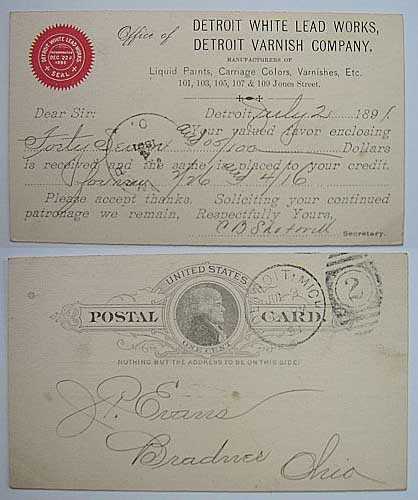 Office of
DETROIT WHITE LEAD WORKS,
DETROIT VARNISH COMPANY.
MANUFACTURERS OF
Liquid Paints, Carriage Colors, Varnishes, Etc.
101, 103, 105, 107 & 109 Jones Street.
DETROIT WHITE LEAD WORKS
INCORPORATED
DEC. 22d
1880
SEAL
Dear Sir: Detroit, July 2, 1891
Your valued favor enclosing
Forty Seven 00/100 Dollars
is received and the same is placed to your credit.
2/26 4/16
Please accept thanks. Soliciting your continued
patronage we remain, Respectfully Yours,
Secretary.
UNITED STATES
POSTAL CARD.
ONE CENT
NOTHING BUT THE ADDRESS TO BE ON THIS SIDE.
DETROIT, MICH.
2
J. P. Evans
Bradner Ohio